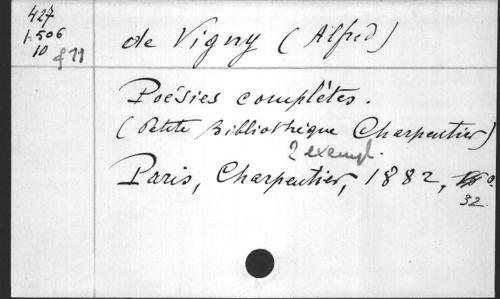 427
1.506
10
f 11
de Vigny (Alfred)
Poésies complètes.
(Petite Bibliothèque Charpentier)
2 exempl.
Paris, Charpentier, 1882,
32.